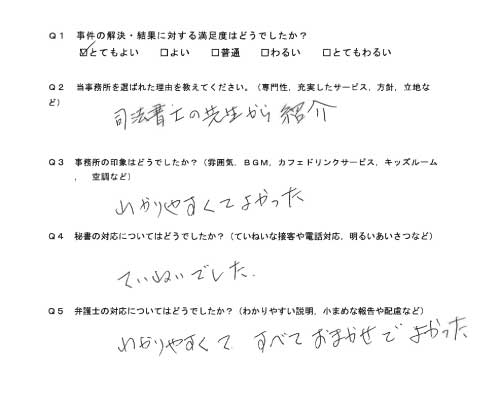 Q1 事件の解決・結果に対する満足度はどうでしたか?
☑とてもよい □よい □普通 □わるい □とてもわるい
Q2 当事務所を選ばれた理由を教えてください。(専門性，充実したサービス，方針，立地な
ど)
司法書士の先生から紹介
Q3 事務所の印象はどうでしたか?(雰囲気，BGM，カフェドリンクサービス，キッズルーム
， 空調など)
わかりやすくてよかった
Q4 秘書の対応についてはどうでしたか?(ていねいな接客や電話対応，明るいあいさつなど)
ていねいでした．
Q5 弁護士の対応についてはどうでしたか?(わかりやすい説明，小まめな報告や配慮など)
わかりやすくて すべておまかせで よかった